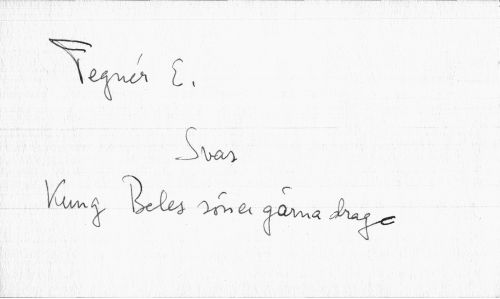 Tegnér E.
Svar
Kung Beles söner gärna drage